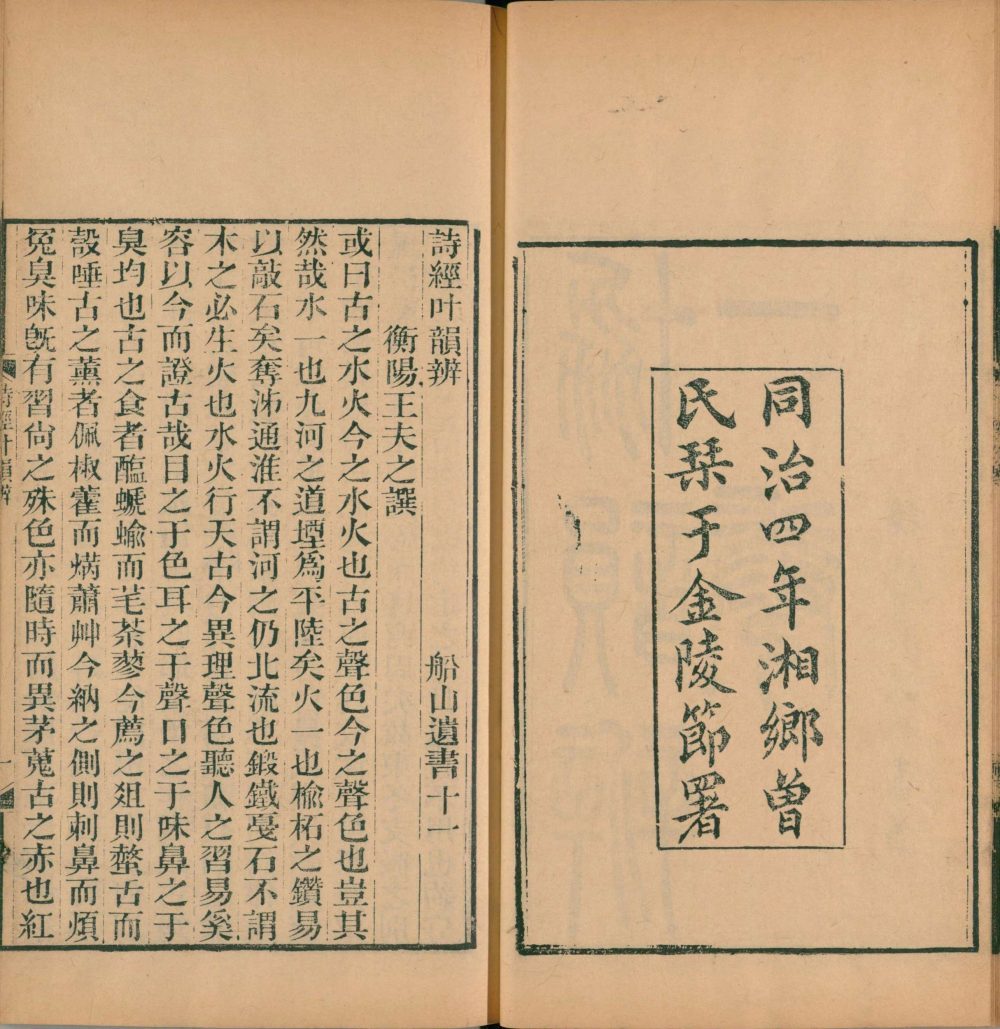 同治四年湘鄉曾
氏栞于金陵節署
詩經叶韻辨 船山遺書十一
衡陽王夫之譔
或曰古之水火今之水火也古之聲色今之聲色也豈其
然哉水一也九河之道堙爲平陸矣火一也楡柘之鑽易
以敲石矣奪泲通淮不謂河之仍北流也鍛鐵戞石不謂
木之必生火也水火行天古今異理聲色聽人之習易奚
容以今而證古哉目之于色耳之于聲口之于味鼻之于
臭均也古之食者醢蚳蝓而芼荼蓼今薦之俎則螫舌而
嗀唾古之薰者佩椒藿而焫蕭艸今納之側則刺鼻而煩
冤臭味旣有習尙之殊色亦隨時而異茅蒐古之赤也紅
詩經叶韻辨
一